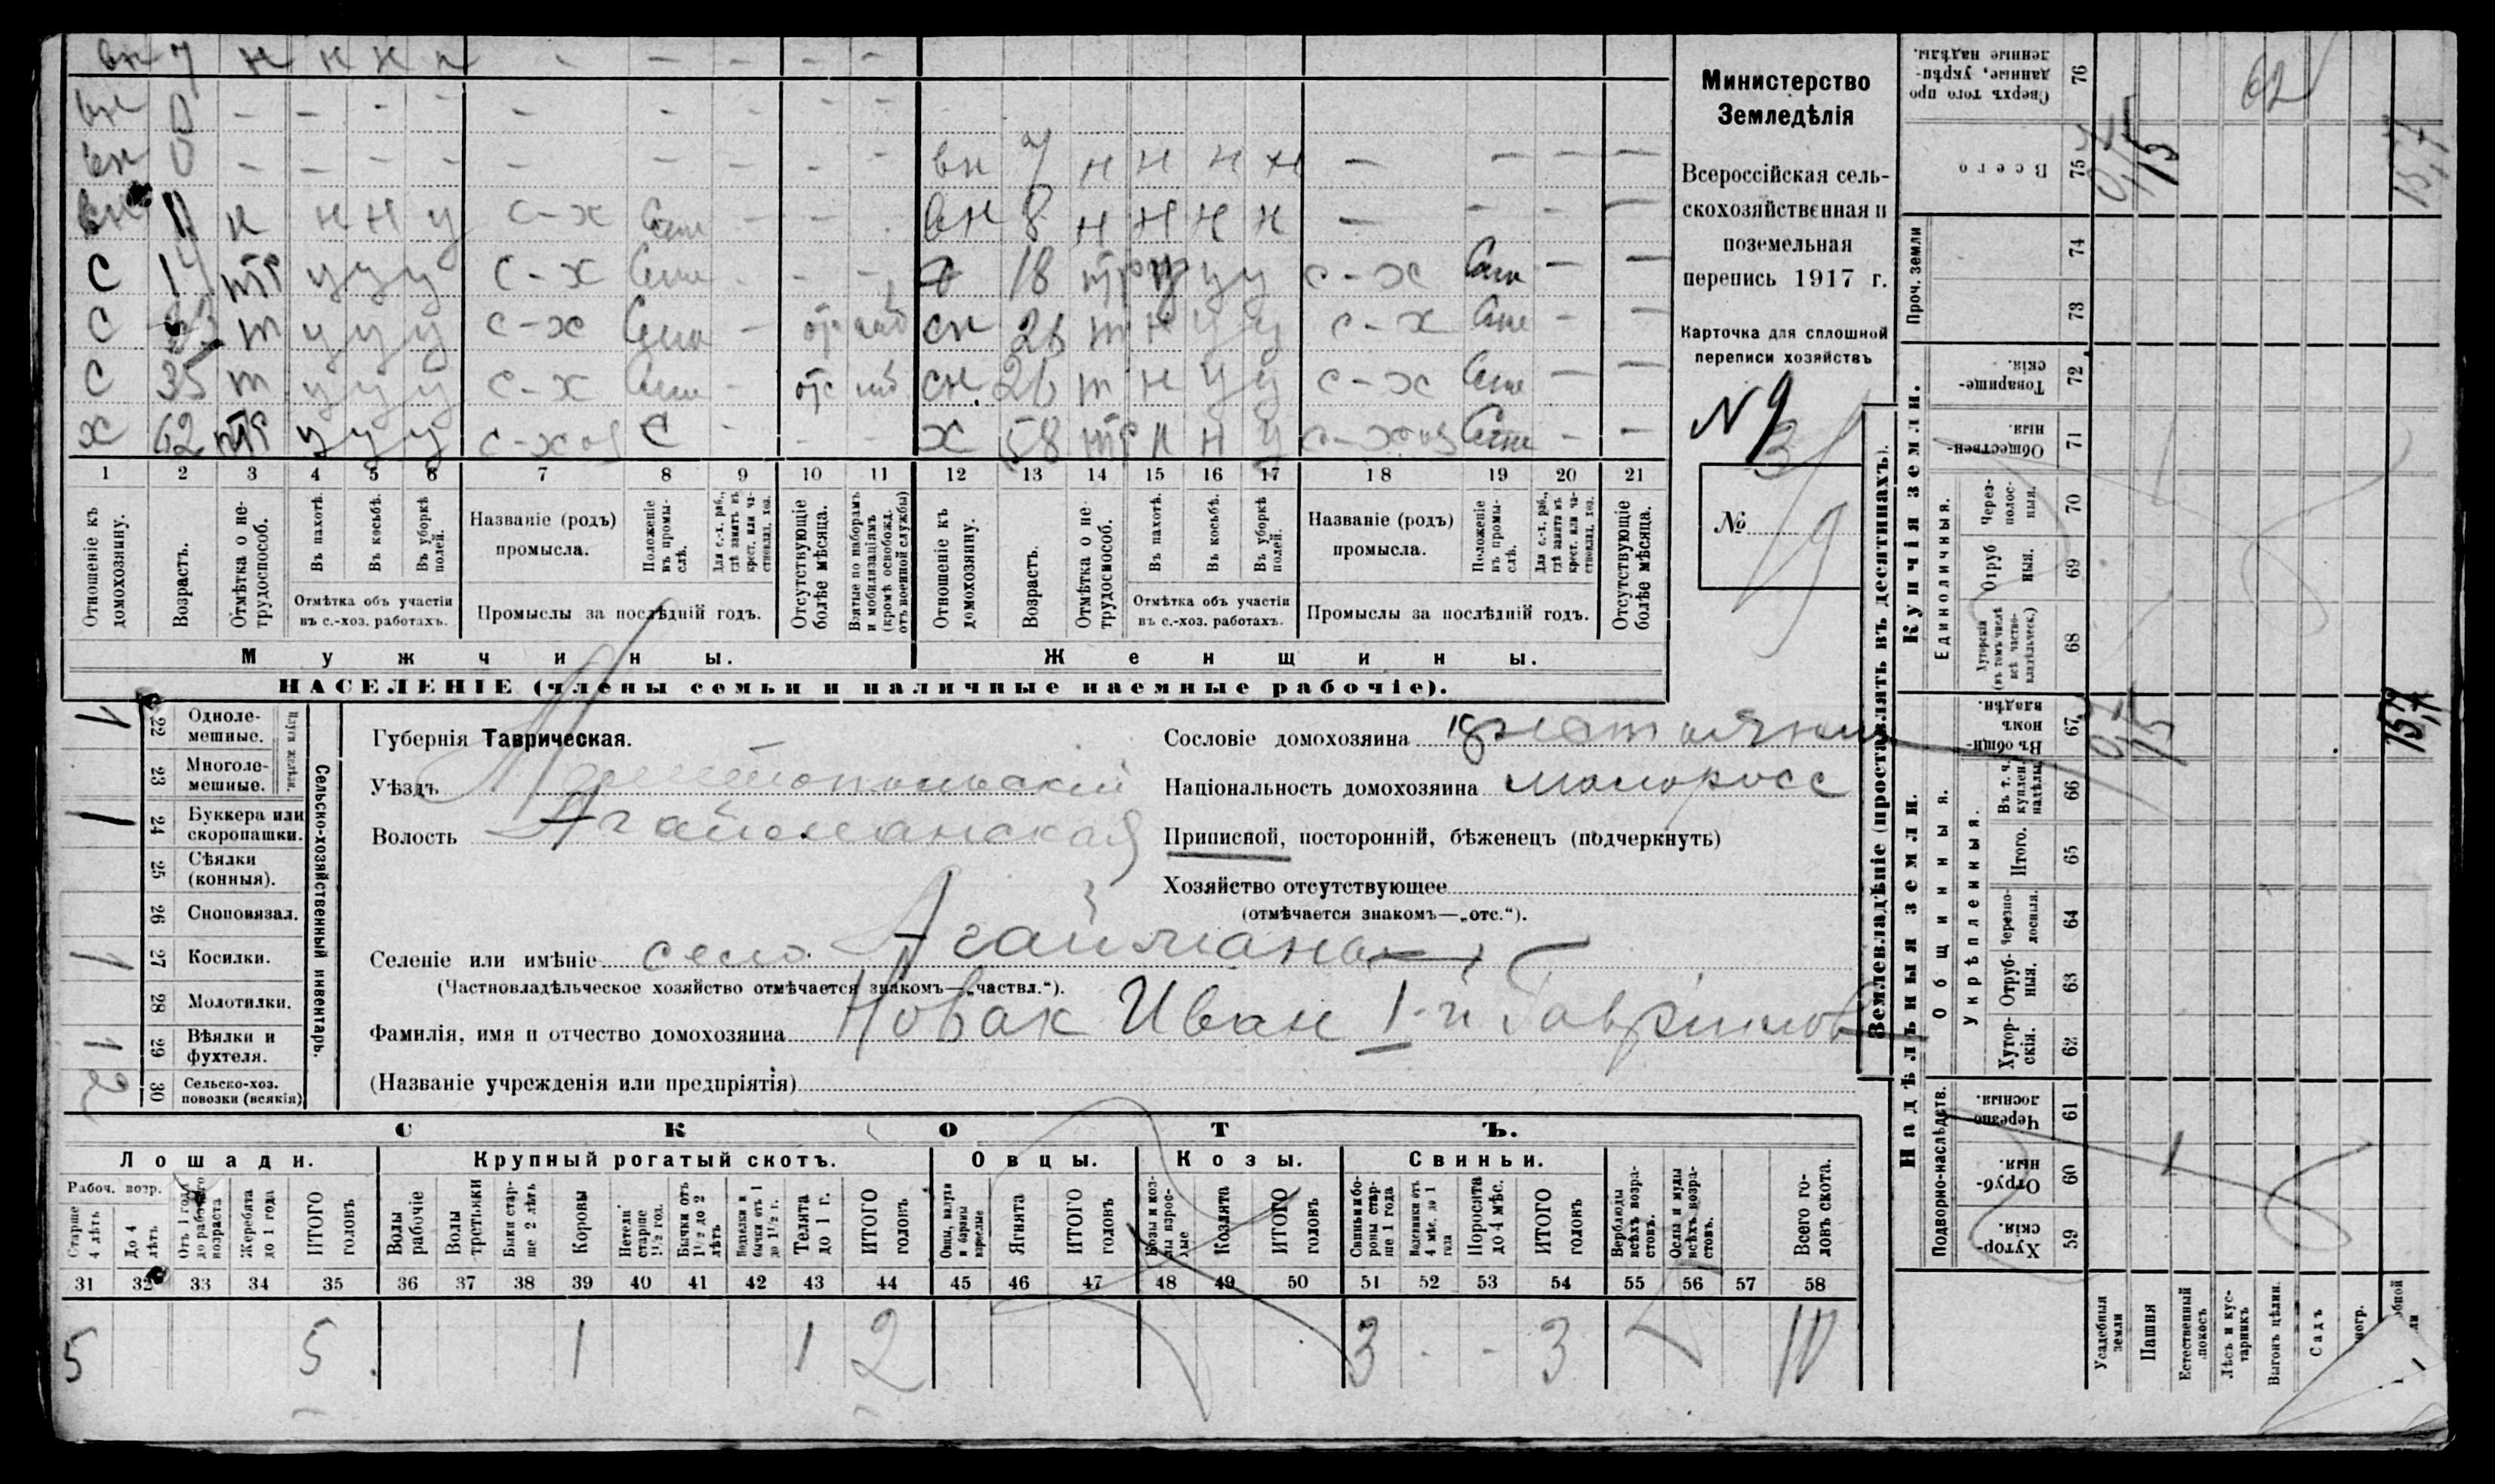 вн 7 н н н н - - - - -
вн 0 - - - - - - - - -
вн 0 - - - - - - - - - вн 7 н н н н — — — —
вн 11 н н н у с-х - - вн 8 н н н н — - - —
с 14 у у у с-х - - - 18 у у с-х — —
с т у у у с-х - отс сн 26 т н у у с-х - —
с 35 т у у у с-х - отс сн 26 т н у у с-х — —
х 62 у у у с-хоз С - - - х 58 н н у с-хоз — —
1 2 3 4 5 6 7 8 9 10 11 12 13 14 15 16 17 18 19 20 21
Отношеніе къ домохозяину.
Возрастъ.
Отмѣтка о нетрудоспособ.
Въ пахотѣ.
Въ косьбѣ.
Въ уборкѣ полей.
Отмѣтка объ участіи
въ с.-хоз. работахъ.
Названіе (родъ)
промысла.
Положеніе въ промыслѣ.
Для с.-х. раб., гдѣ занятъ въ крест. или частновлад. хоз.
Промыслы за послѣдній годъ.
Отсутствующіе болѣе мѣсяца.
Взятые по наборамъ и мобилизаціямъ (кромѣ освобожд. отъ военной службы)
Отношеніе къ домохозяину.
Возрастъ.
Отмѣтка о нетрудоспособ.
Въ пахотѣ.
Въ косьбѣ.
Въ уборкѣ полей.
Отмѣтка объ участіи
въ с.-хоз. работахъ.
Названіе (родъ)
промысла.
Положеніе въ промыслѣ.
Для с.-х. раб., гдѣ занятъ въ крест. или частновлад. хоз.
Промыслы за послѣдній годъ.
Отсутствующіе болѣе мѣсяца.
Мужчины.
Женщины.
НАСЕЛЕНІЕ (члены семьи и наличные наемные рабочіе).
Министерство
Земледѣлія
Всероссійская сель-
скохозяйственная и
поземельная
перепись 1917 г.
Карточка для сплошной
переписи хозяйствъ
N 9
№
Сельско-хозяйственный инвентарь.
Плуги желѣзн.
1 22 Одноле-
мешные.
23 Многоле-
мешные.
1 24 Буккера или
скоропашки.
25 Сѣялки
(конныя).
26 Сноповязал.
1 27 Косилки.
28 Молотилки.
1 29 Вѣялки и
фухтеля.
2 30 Сельско-хоз.
повозки (всякія)
Губернія Таврическая.
Уѣздъ Мелитопольскій
Волость Агайманская
Сословіе домохозяина крестьянин
Національность домохозяина малоросс
Приписной, посторонній, бѣженецъ (подчеркнуть)
Хозяйство отсутствующее
(отмѣчается знакомъ—„отс.“).
Селеніе или имѣніе село Агайманъ
(Частновладѣльческое хозяйство отмѣчается знакомъ—„частвл.“).
Фамилія, имя и отчество домохозяина Новак Иван 1-й Гаврилов
(Названіе учрежденія или предпріятія)
СКОТЪ.
Лошади. Крупный рогатый скотъ. Овцы. Козы. Свиньи.
Рабоч. возр.
Старше 4 лѣтъ
До 4 лѣтъ
Отъ 1 года до рабочаго возраста
Жеребята до 1 года
ИТОГО головъ
Волы рабочіе
Волы третьяки
Быки старше 2 лѣтъ
Коровы
Нетели старше 1½ год.
Бычки отъ 1½ до 2 лѣтъ
Телки и бычки отъ 1 до 1½ г.
Телята до 1 г.
ИТОГО головъ
Овцы, валухи и бараны взрослые
Ягнята
ИТОГО головъ
Козы и козлы взрослые
Козлята
ИТОГО головъ
Свиньи и боровы старше 1 года
Подсвинки отъ 4 мѣс. до 1 года
Поросята до 4 мѣс.
ИТОГО головъ
Верблюды всѣхъ возрастовъ.
Ослы и мулы всѣхъ возрастовъ.
Всего головъ скота.
31 32 33 34 35 36 37 38 39 40 41 42 43 44 45 46 47 48 49 50 51 52 53 54 55 56 57 58
5 5 1 1 2 3 - - 3 10
Землевладѣніе (проставлять въ десятинахъ).
Надѣльныя земли.
Купчія земли.
Проч. земли
Подворно-наслѣдств.
Общинныя.
Укрѣпленныя.
Единоличныя.
Сверхъ того проданные, укрѣпленные надѣлы. 76 62
Всего 75 15 15,7
74
73
Товарищескія. 72
Общественныя. 71
Черезполосныя. 70
Отрубныя. 69
Хуторскія (въ томъ числѣ всѣ частновладѣльческ.) 68
Въ общинномъ владѣн. 67 15 15,7
Въ т. ч. куплен. надѣлы 66
Итого. 65
Черезполосныя. 64
Отрубныя. 63
Хуторскія. 62
Черезполосныя. 61
Отрубныя. 60
Хуторскія. 59
Усадебныя земли
Пашня
Естественный покосъ
Лѣсъ и кустарникъ
Выгонъ цѣлин.
Садъ